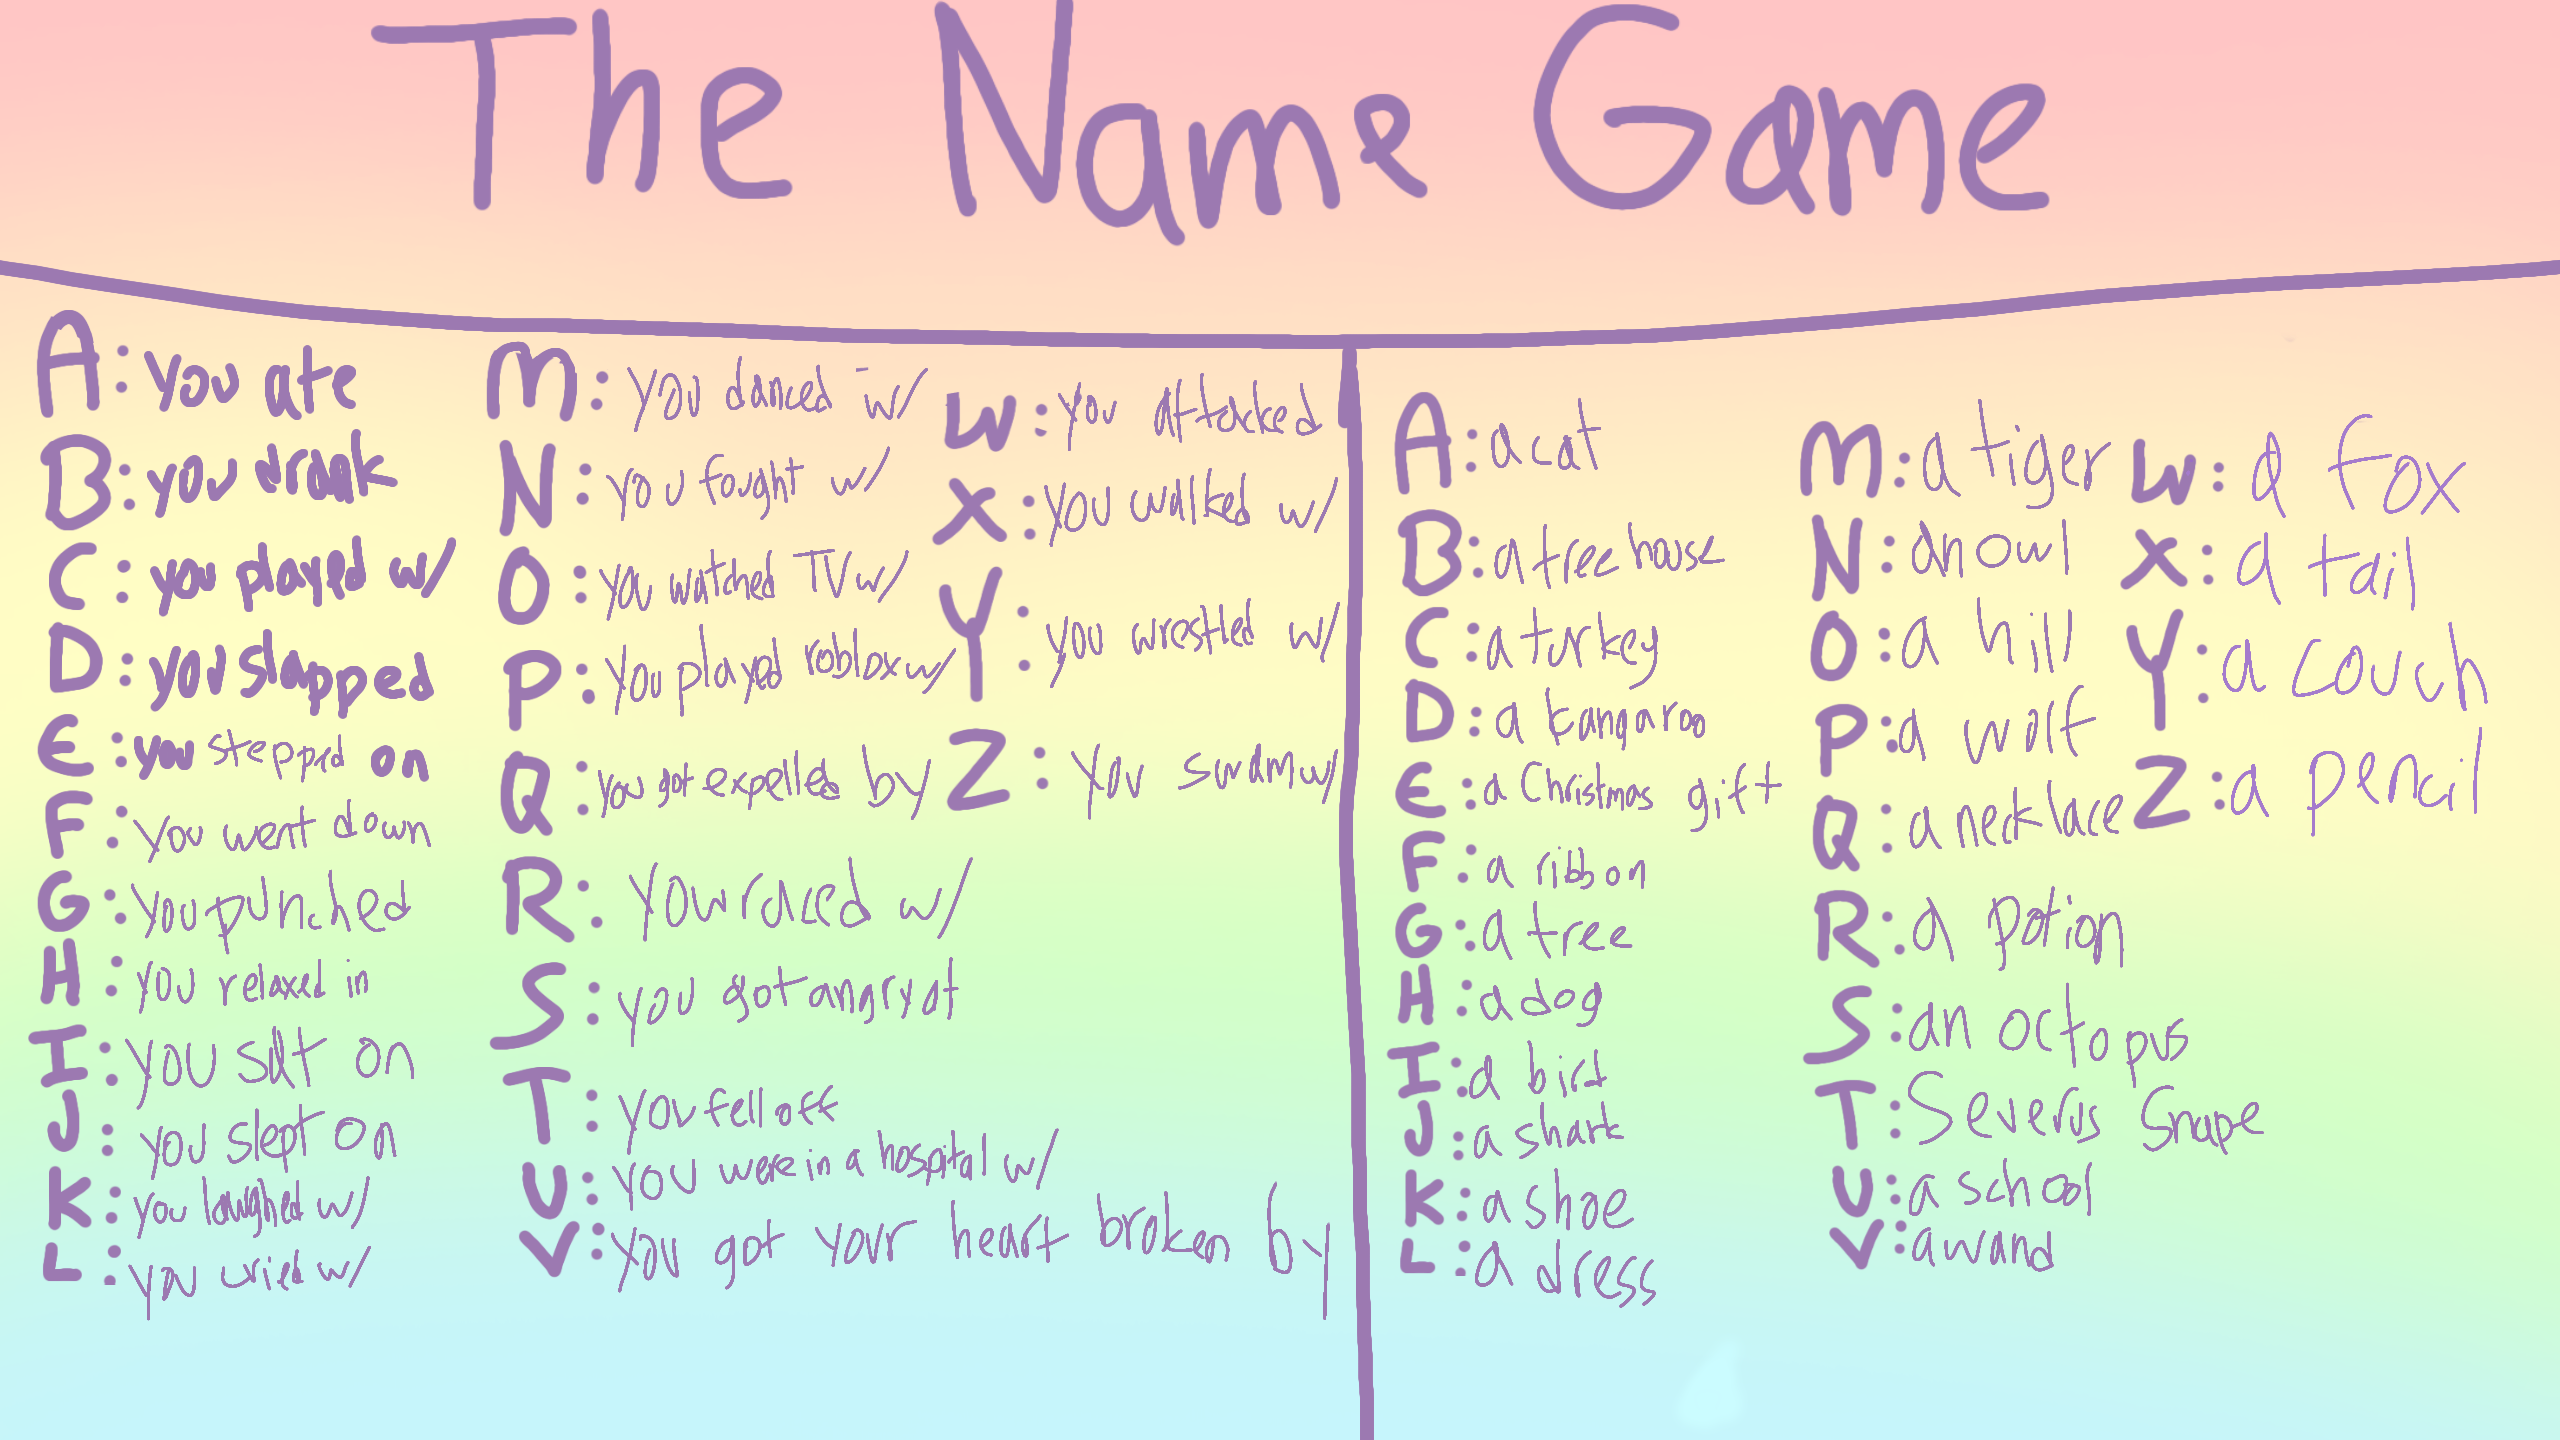 The Name Game
A: you ate
B: you drank
C: you played w/
D: you slapped
E: you stepped on
F: you went down
G: you punched
H: you relaxed in
I: you sat on
J: you slept on
K: you laughed w/
L: you cried w/
M: you danced w/
N: you fought w/
O: you watched TV w/
P: you played roblox w/
Q: you got expelled by
R: you raced w/
S: you got angry at
T: you fell off
U: you were in a hospital w/
V: you got your heart broken by
W: you attacked
X: you walked w/
Y: you wrestled w/
Z: you swam w/
A: a cat
B: a tree house
C: a turkey
D: a kangaroo
E: a Christmas gift
F: a ribbon
G: a tree
H: a dog
I: a bird
J: a shark
K: a shoe
L: a dress
M: a tiger
N: an owl
O: a hill
P: a wolf
Q: a necklace
R: a potion
S: an octopus
T: Severus Snape
U: a school
V: a wand
W: a fox
X: a tail
Y: a couch
Z: a pencil